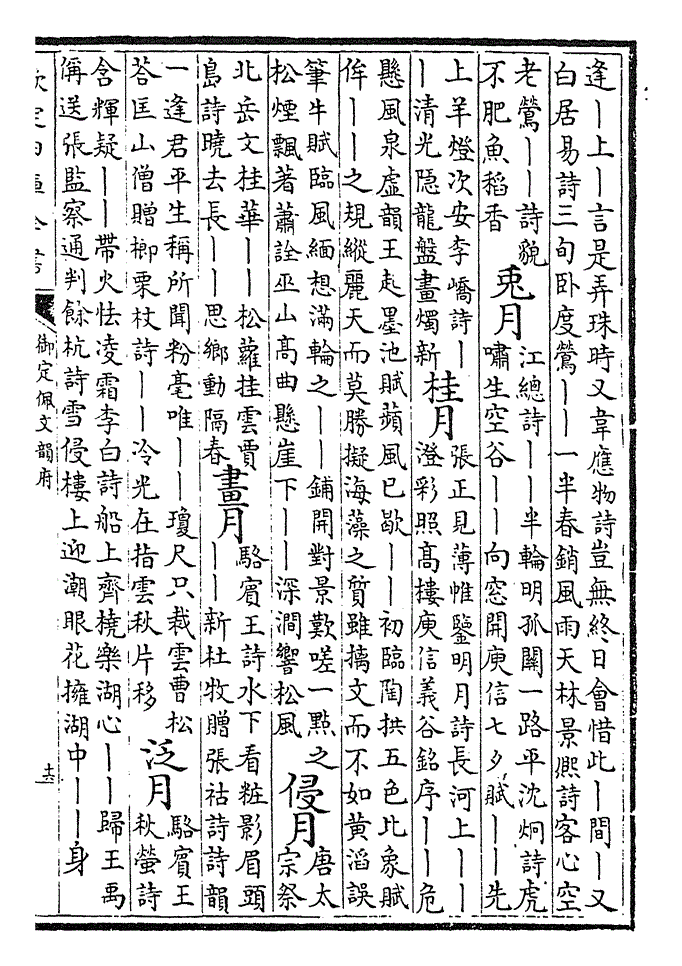 逢｜上｜言是弄珠時又韋應物詩豈無終日會惜此｜間｜又
白居易詩三旬卧度鶯｜｜一半春銷風雨天林景熈詩客心空
老鶯｜｜詩貌
不肥魚稻香
兎月
江總詩｜｜半輪明孤關一路平沈炯詩虎
嘯生空谷｜｜向窓開庾信七夕賦｜｜先
上羊燈次安李嶠詩｜
｜清光隠龍盤畫燭新
桂月
張正見薄帷鑒明月詩長河上｜｜
澄彩照髙樓庾信義谷銘序｜｜危
懸風泉虚韻王起墨池賦蘋風已歇｜｜初臨陶拱五色比象賦
侔｜｜之規縱麗天而莫勝擬海藻之質雖摛文而不如黄滔誤
筆牛賦臨風緬想滿輪之｜｜鋪開對景歎嗟一點之
松煙飄著蕭詮巫山髙曲懸崖下｜｜深澗響松風
侵月
唐太
宗祭
北岳文桂華｜｜松蘿挂雲賈
島詩曉去長｜｜思鄉動隔春
畫月
駱賓王詩水下看粧影眉頭
｜｜新杜牧贈張祜詩詩韻
一逢君平生稱所聞粉毫唯｜｜瓊尺只裁雲曹松
荅匡山僧贈榔栗杖詩｜｜冷光在指雲秋片移
泛月
駱賓王
秋螢詩
含輝疑｜｜帶火怯凌霜李白詩船上齊橈樂湖心｜｜歸王禹
偁送張監察通判餘杭詩雪侵樓上迎潮眼花擁湖中｜｜身
欽定四庫全書
御定佩文韻府
十六